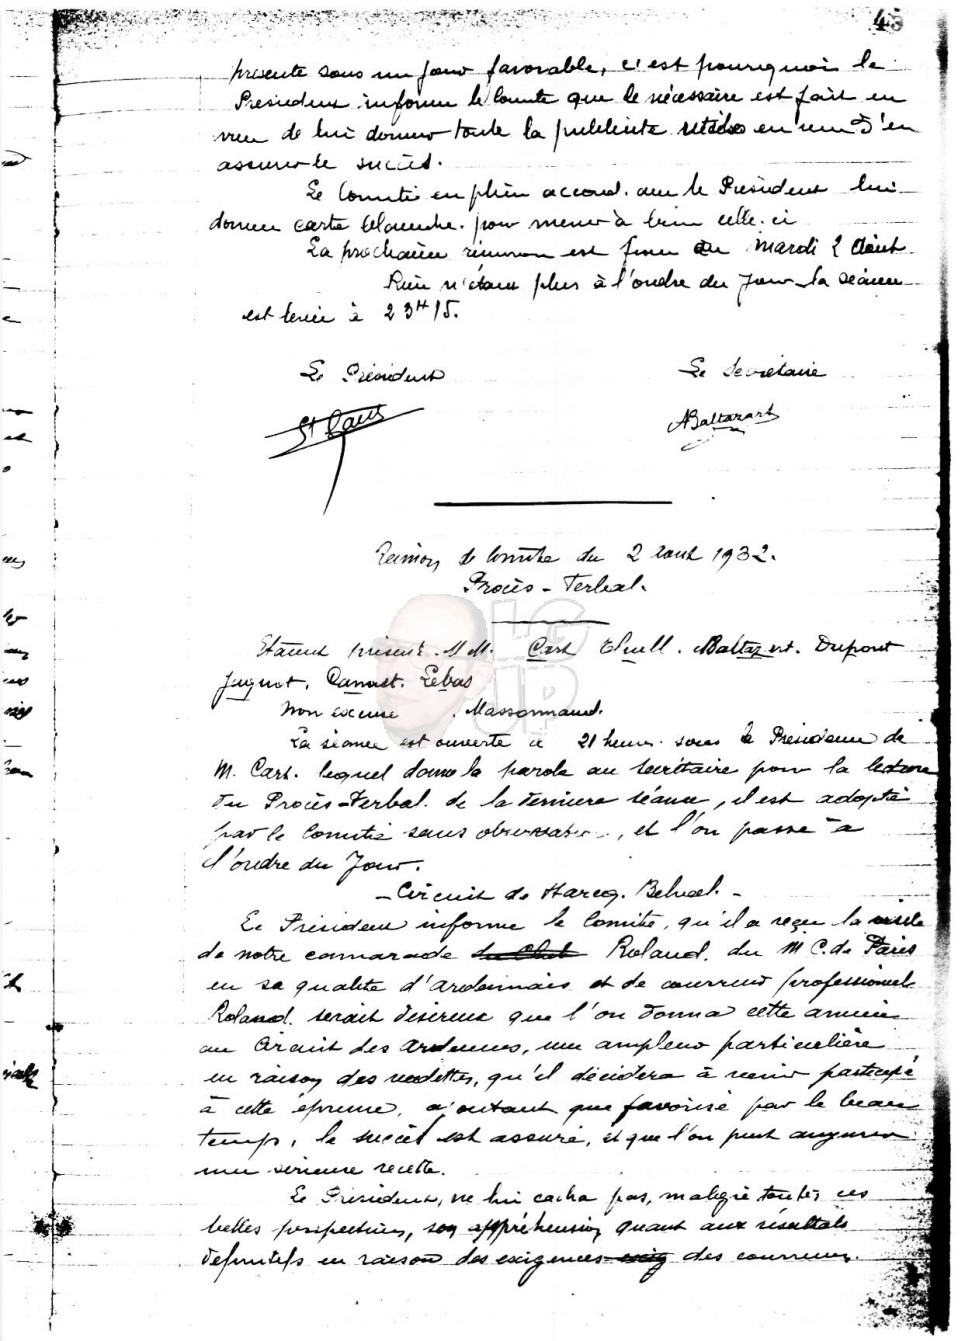 45
présente sous un jour favorable, c'est pourquoi le
Président informe le Comité que le nécessaire est fait en
vue de lui donner toute la publicité en vue d'en
assurer le succès.
Le Comité en plein accord. avec le Président lui
donne carte blanche. pour mener à bien celle-ci
La prochaine réunion est fixée au Mardi 2 Août
Rien n'étant plus à l'ordre du Jour la séance
est levée à 23H15.
Le Président
Le Secrétaire
St Cart
ABaltazart
Réunion de Comité du 2 août 1932.
Procès-Verbal.
LG
JP
Etaient présent. M M. Cart Thull. Baltazart. Dupont
Juquot. Canart. Lebas
Non excusé . Massonnaud.
La séance est ouverte à 21 heures sous la Présidence de
M. Cart. lequel donne la parole au secrétaire pour la lecture
du Procès-Verbal. de la dernière séance, il est adopté
par le Comité sans observation, et l'on passe à
l'ordre du Jour.
- Circuit de Harcy. Belval. -
Le Président informe le Comité, qu'il a reçu la visite
de notre camarade du Club Roland. du M C. de Paris
en sa qualité d'ardennais et de coureur professionnel
Roland. serait désireux que l'on donna cette année
au Circuit des Ardennes, une ampleur particulière
en raison des vedettes, qu'il décidera à venir participé
à cette épreuve, d'autant que favorisé par le beau
temps, le succès est assuré, et que l'on peut augurer
une sérieuse recette.
Le Président, ne lui cacha pas, malgré toutes ces
belles perspectives, son appréhension quant aux résultats
définitifs en raison des exigences des coureurs.